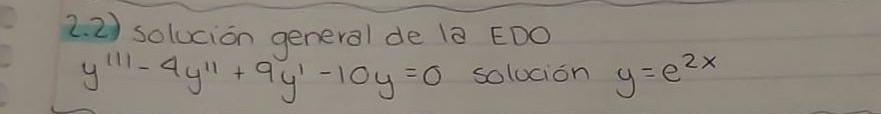 2.2) solución general de la EDO
y''' - 4y'' + 9y' - 10y = 0 solución y = e^{2x}